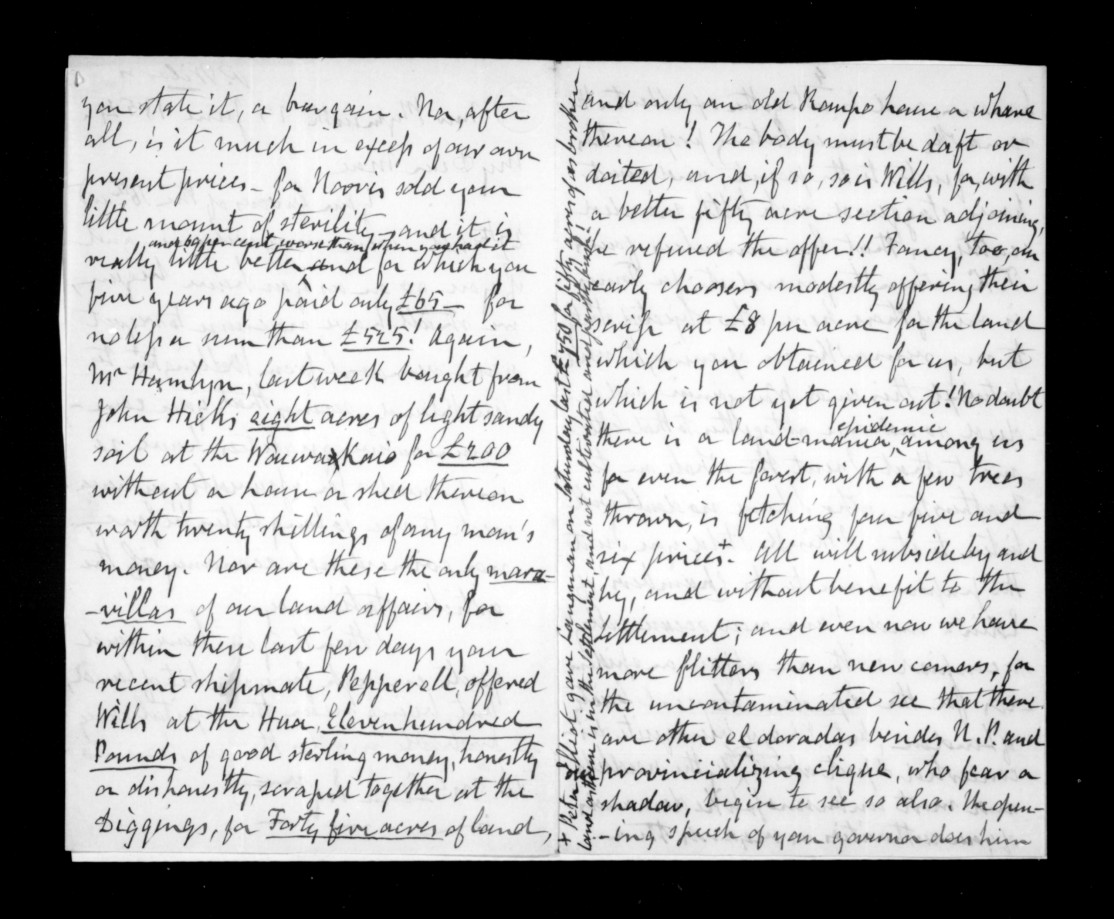 you state it, a bargain. Nor, after
all, is it much in excess of our own
present prices – for Norris sold your
little mount of sterility – and it is
and 50 per cent worse than when you had it
really little better and for which you
five years ago paid only £65 – for
no less a sum than £525! Again,
Mr Hamlyn, last week bought from
John Hicks eight acres of light sandy
soil at the Wauwakaio for £200
without a house or shed thereon
worth twenty shillings of any man's
money. Nor are these the only mara-
-villas of our land affairs, for
within these last few days your
recent shipmate, Pepperell, offered
Wills at the Hua, Eleven hundred
Pounds of good sterling money, honestly
or dishonestly, scraped together at the
Diggings, for Forty five acres of land,
+ Peter Elliot gave Langman on Saturday last £750 for fifty acres of as broken
land as there is in the settlement and not all cleared and part
and only an old Raupo house a whare
thereon! The body must be daft or
doited, and, if so, so is Wills, for, with
a better fifty acre section adjoining,
he refused the offer!! Fancy, too, our
early choosers modestly offering their
scrip at £8 per acre for the land
which you obtained for us, but
which is not yet given out! No doubt
epidemic
there is a land-mania among us
for even the forest, with a few trees
thrown, is fetching four five and
six prices+. All will subside by and
by, and without benefit to the
settlement; and even now we have
more flitters than new comers, for
the uncontaminated see that there
are other eldoradas besides N.P. and
provincializing clique, who fear a
shadow, begin to see so also. The open-
-ing speech of your governor does him